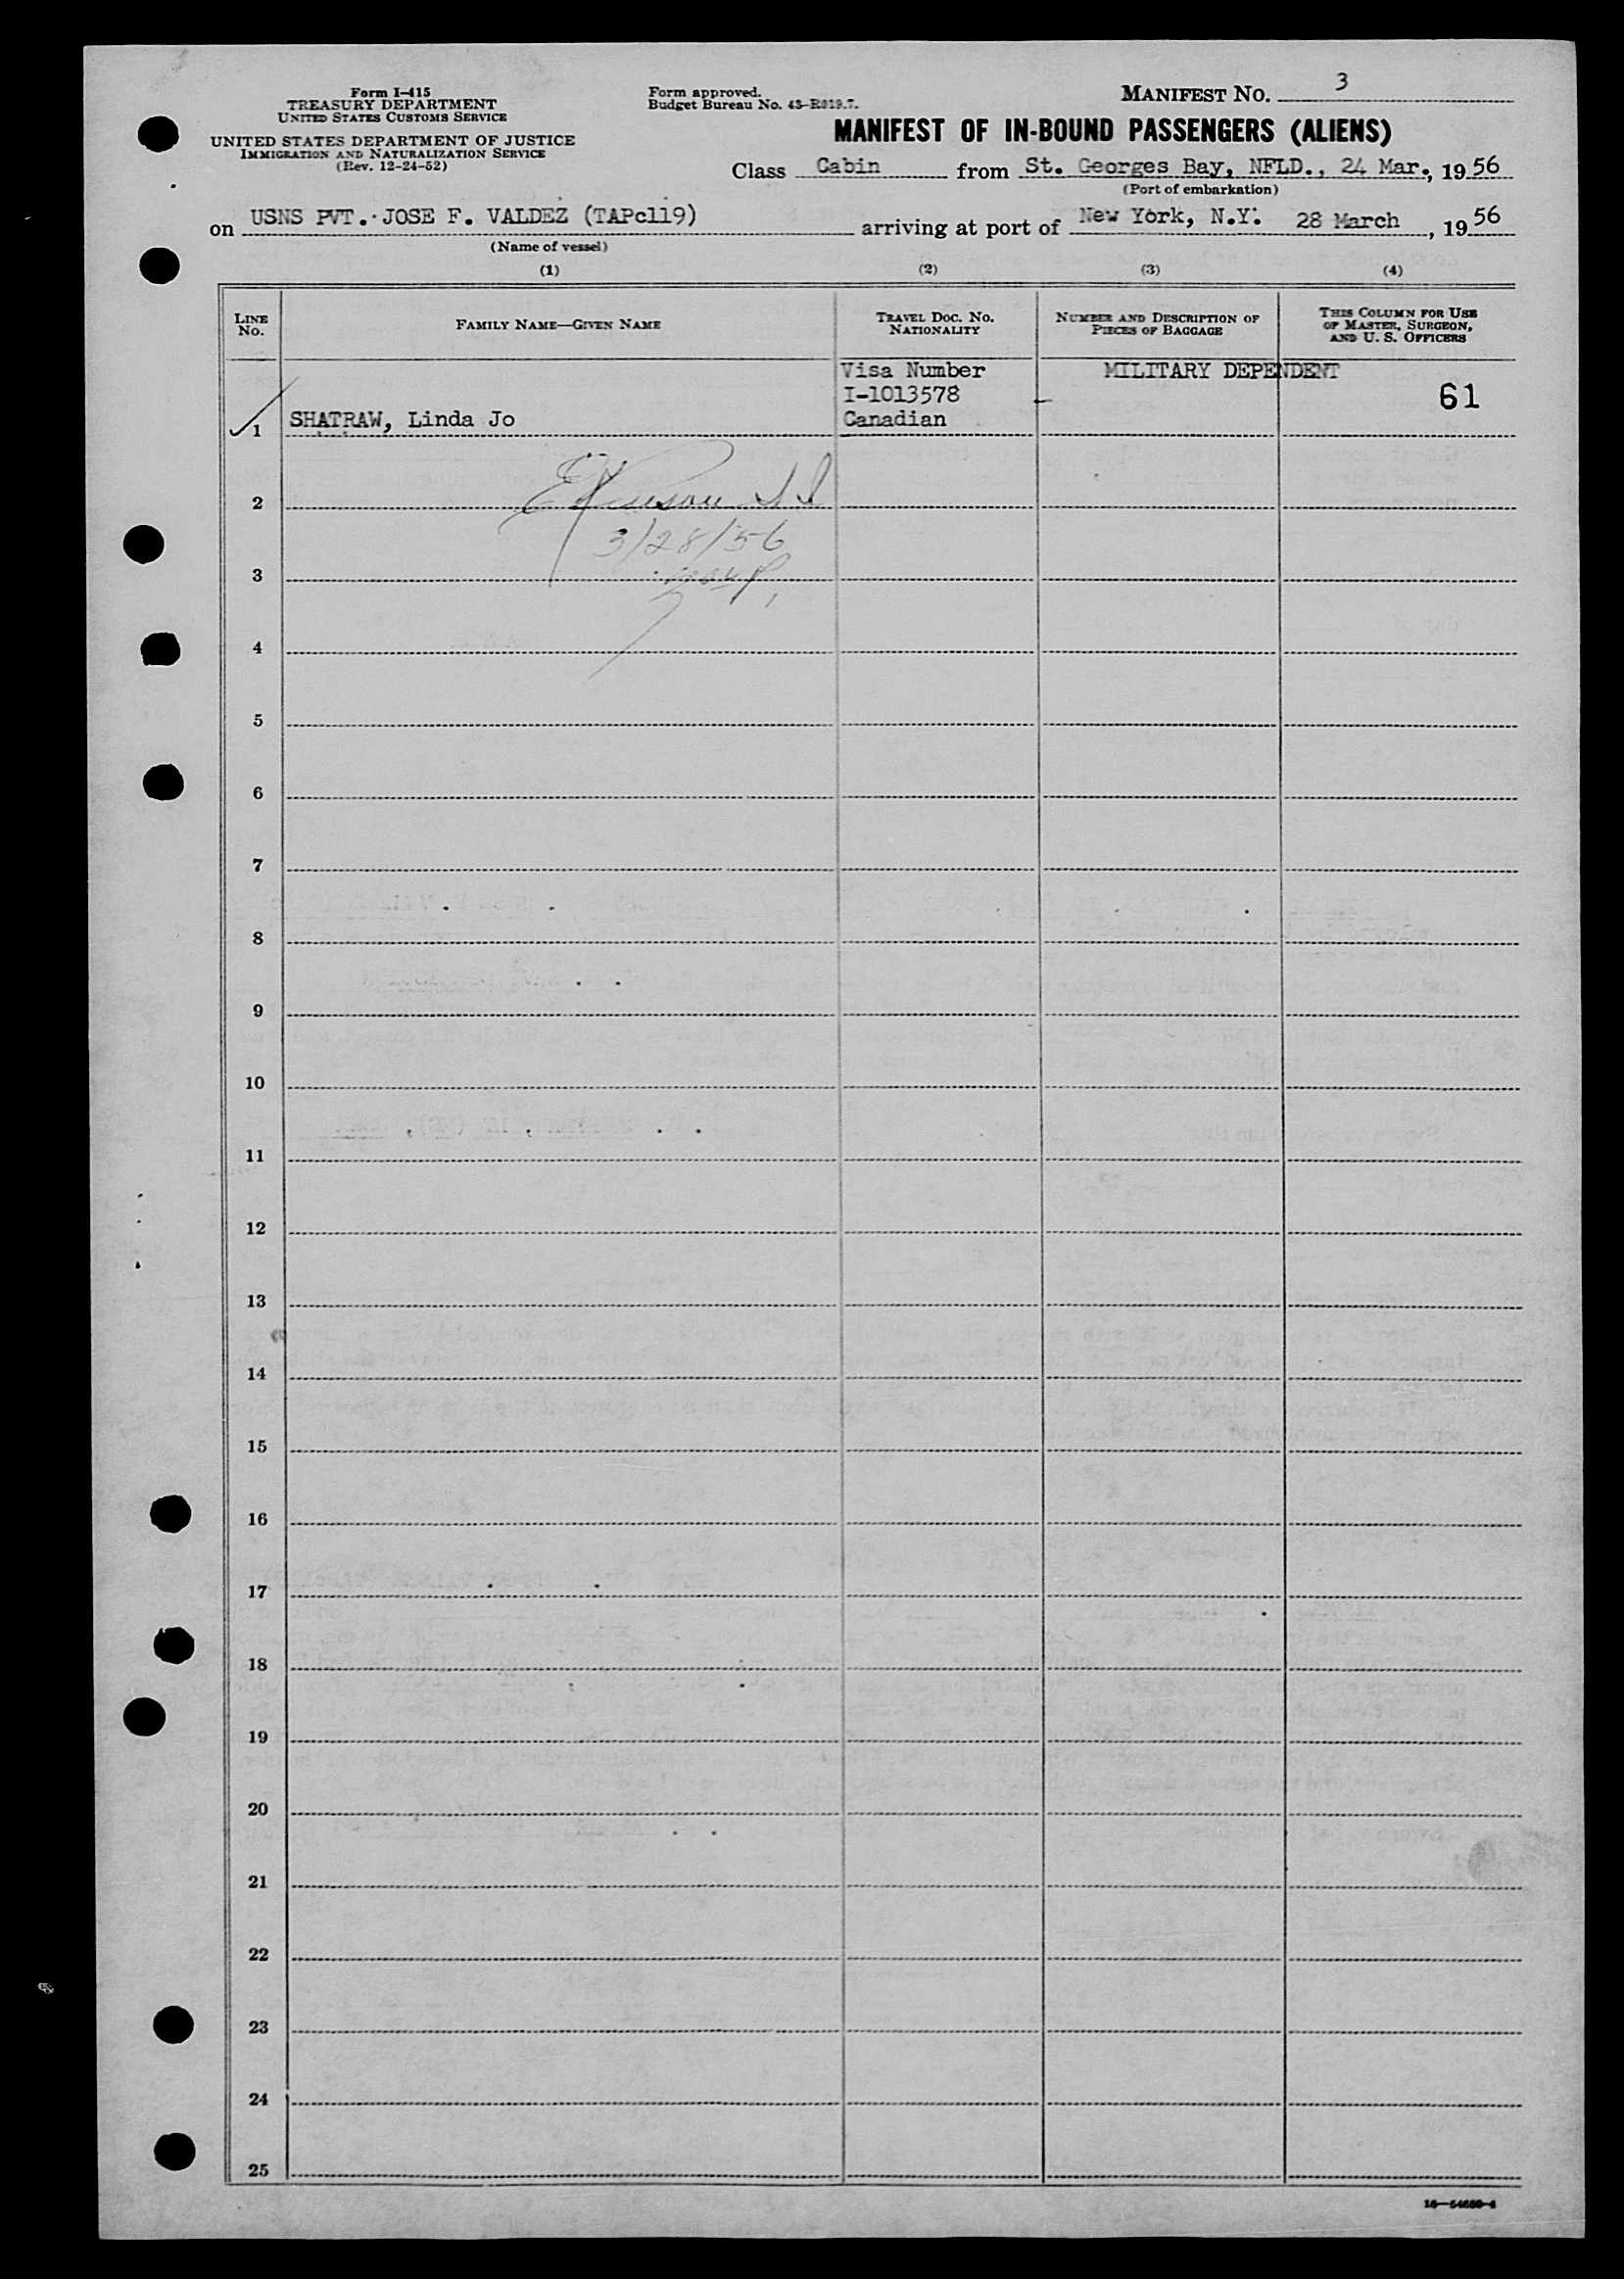 Form I-415
TREASURY DEPARTMENT
UNITED STATES CUSTOMS SERVICE
UNITED STATES DEPARTMENT OF JUSTICE
IMMIGRATION AND NATURALIZATION SERVICE
(Rev. 12-24-52)
Form approved.
Budget Bureau No. 43-R019.7.
MANIFEST NO. 3
MANIFEST OF IN-BOUND PASSENGERS (ALIENS)
Class Cabin from St. Georges Bay, NFLD., 24 Mar., 1956
(Port of embarkation)
on USNS PVT. JOSE F. VALDEZ (TAPc119) arriving at port of New York, N.Y. 28 March, 1956
(Name of vessel)
(1) (2) (3) (4)
LINE NO.
FAMILY NAME—GIVEN NAME
TRAVEL DOC. NO. NATIONALITY
NUMBER AND DESCRIPTION OF PIECES OF BAGGAGE
THIS COLUMN FOR USE OF MASTER, SURGEON, AND U. S. OFFICERS
Visa Number MILITARY DEPENDENT
I-1013578 61
1 SHATRAW, Linda Jo Canadian
2
3/28/56
3
4
5
6
7
8
9
10
11
12
13
14
15
16
17
18
19
20
21
22
23
24
25